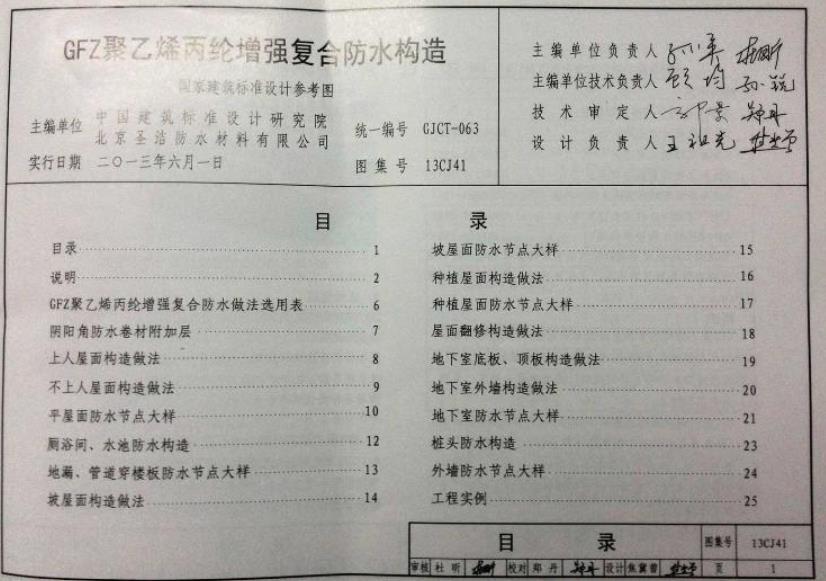 GFZ聚乙烯丙纶增强复合防水构造
国家建筑标准设计参考图
主编单位 中国建筑标准设计研究院
北京圣洁防水材料有限公司
统一编号 GJCT-063
实行日期 二〇一三年六月一日
图集号 13CJ41
主编单位负责人
主编单位技术负责人
技术审定人
设计负责人 王祖光
目 录
目录 1
说明 2
GFZ聚乙烯丙纶增强复合防水做法选用表 6
阴阳角防水卷材附加层 7
上人屋面构造做法 8
不上人屋面构造做法 9
平屋面防水节点大样 10
厕浴间、水池防水构造 12
地漏、管道穿楼板防水节点大样 13
坡屋面构造做法 14
坡屋面防水节点大样 15
种植屋面构造做法 16
种植屋面防水节点大样 17
屋面翻修构造做法 18
地下室底板、顶板构造做法 19
地下室外墙构造做法 20
地下室防水节点大样 21
桩头防水构造 23
外墙防水节点大样 24
工程实例 25
目 录 图集号 13CJ41
审核 杜昕 校对 郑丹 设计 页 1